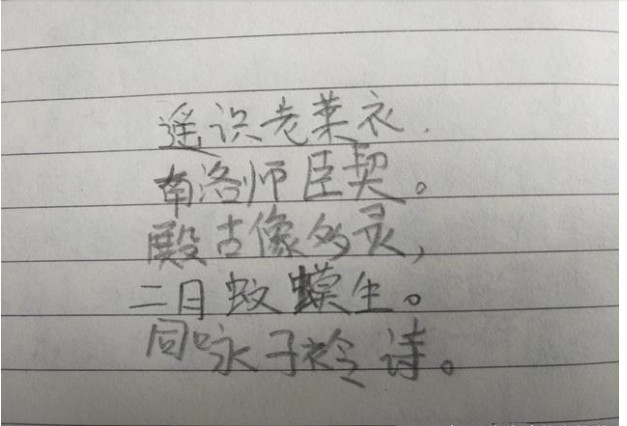 遥识老莱衣.
南洛师臣契。
殿古像多灵,
二日蚊蟆生。
同咏子衿诗。